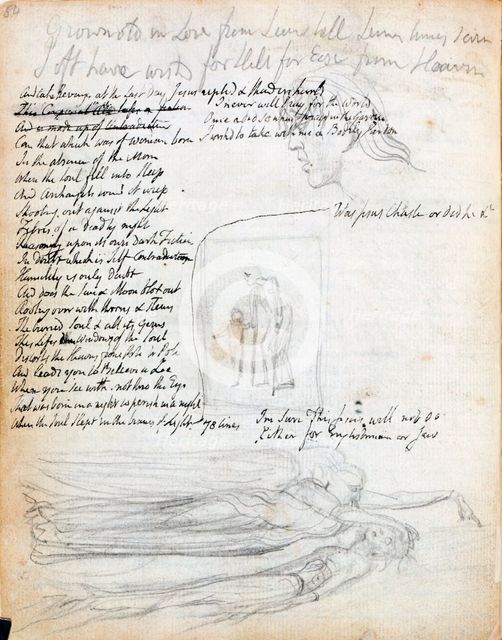 54
Grown old in Love from Seven till Seven times Seven
I oft have wishd for Hell for Ease from Heaven
And take Revenge at the last Day Jesus replied & thunders hurld
I never will Pray for the World
This Corporeal life's a fiction
And is made up of Contradiction
Once I did so when I prayd in the Garden
I wishd to take with me a Bodily Pardon
Can that which was of woman born
In the absence of the Morn
When the Soul fell into Sleep
And Archangels round it weep
Shooting out against the Light
Fibres of a deadly night
Reasoning upon its own Dark Fiction
In Doubt which is Self Contradiction
Humility is only Doubt
And does the Sun & Moon blot out
Rooting over with thorns & stems
The buried Soul & all its Gems
This Lifes dim Windows of the Soul
Distorts the Heavens from Pole to Pole
And leads you to Believe a Lie
When you see with not thro the Eye
That was born in a night to perish in a night
When the Soul slept in the beams of Light 78 lines
Was Jesus Chaste or did he &c
Im sure This Jesus will not do
Either for Englishman or Jew